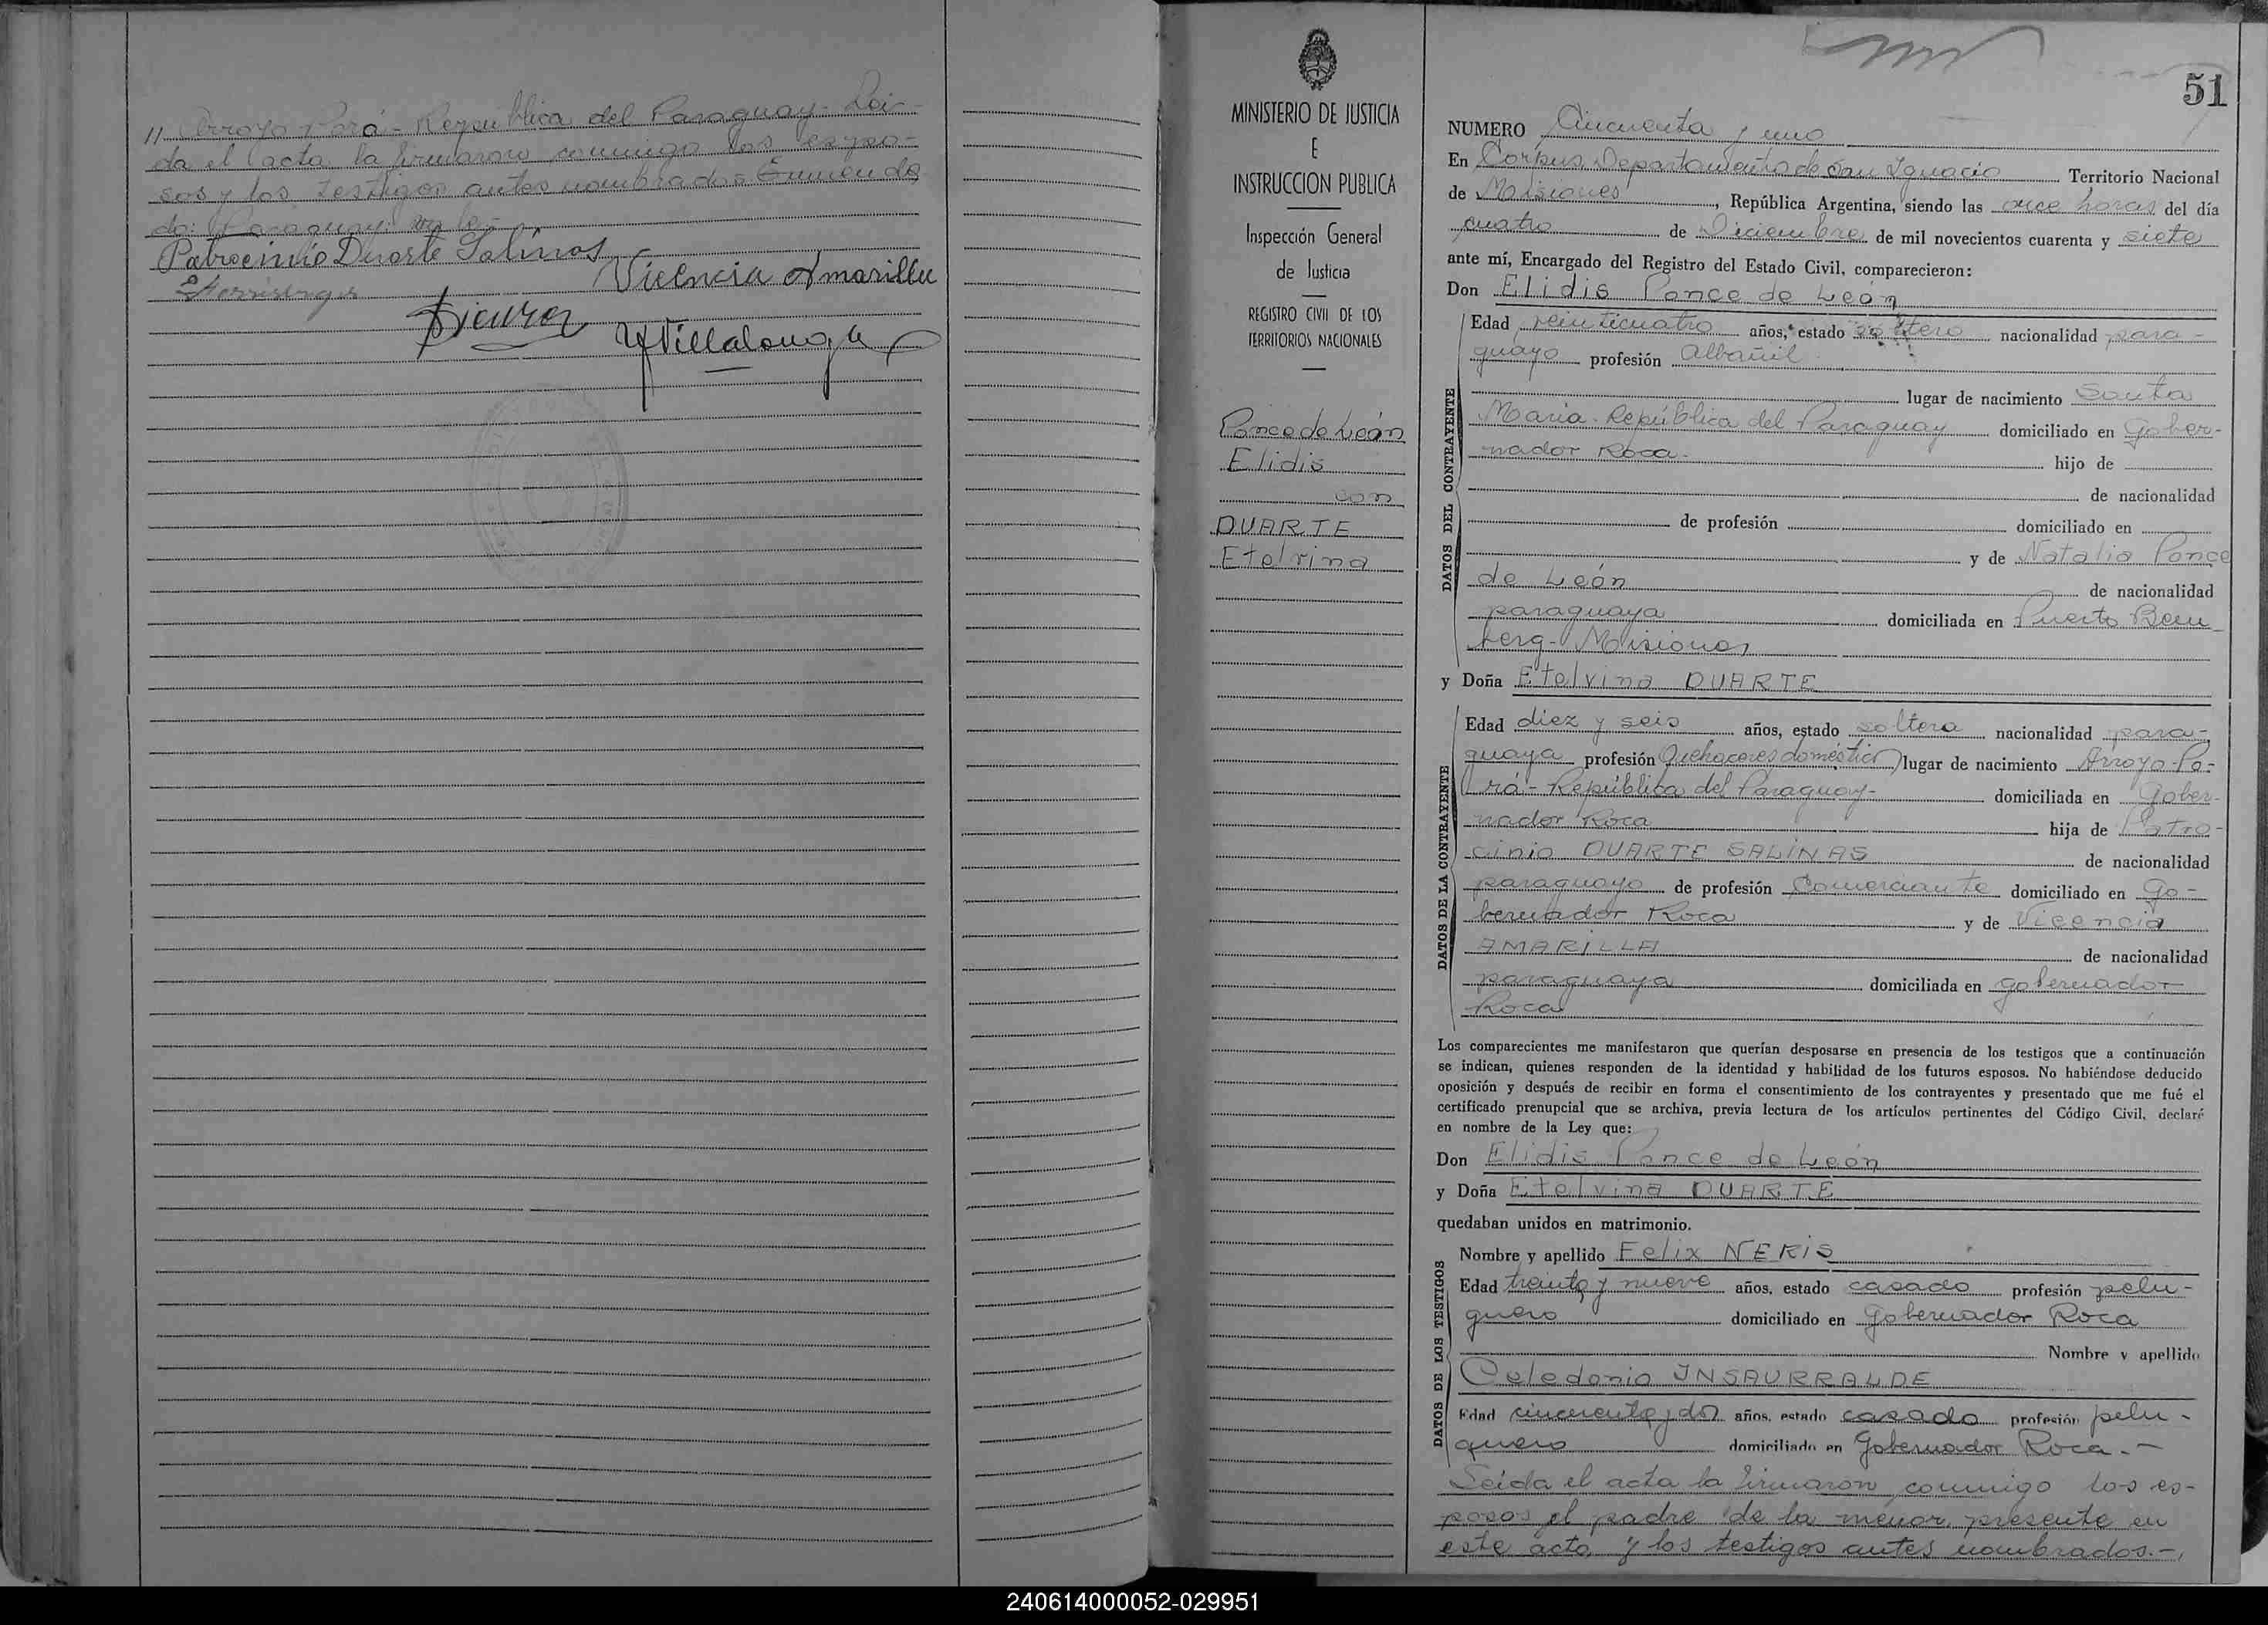 // Arroyo Porá - República del Paraguay - Leí-
da el acta la firmaron conmigo los espo-
sos y los testigos antes nombrados Enmenda
do: Paraguay: vale-
Patrocinio Duarte Salinas
Vicencia Amarilla
Villalonga
MINISTERIO DE JUSTICIA
E
INSTRUCCION PUBLICA
Inspección General
de Justicia
REGISTRO CIVIL DE LOS
TERRITORIOS NACIONALES
Ponce de León
Elidis
con
DUARTE
Etelvina
51
NUMERO Cincuenta y uno
En Corpus, Departamento de San Ignacio Territorio Nacional
de Misiones, República Argentina, siendo las once horas del día
cuatro de Diciembre de mil novecientos cuarenta y siete
ante mí, Encargado del Registro del Estado Civil, comparecieron:
Don Elidis Ponce de León
DATOS DEL CONTRAYENTE
Edad veinticuatro años, estado soltero nacionalidad para-
guayo profesión Albañil
lugar de nacimiento Santa
María - República del Paraguay domiciliado en Gober-
nador Roca- hijo de
de nacionalidad
de profesión domiciliado en
y de Natalia Ponce
de León de nacionalidad
paraguaya domiciliada en Puerto Bem
berg - Misiones
y Doña Etelvina DUARTE
DATOS DE LA CONTRAYENTE
Edad diez y seis años, estado soltera nacionalidad para-
guaya profesión Quehaceres domésticos lugar de nacimiento Arroyo Po-
rá - República del Paraguay- domiciliada en Gober-
nador Roca hija de Patro-
cinio DUARTE SALINAS de nacionalidad
paraguayo de profesión Comerciante domiciliado en Go-
bernador Roca y de Vicencia
AMARILLA de nacionalidad
paraguaya domiciliada en Gobernador
Roca
Los comparecientes me manifestaron que querían desposarse en presencia de los testigos que a continuación
se indican, quienes responden de la identidad y habilidad de los futuros esposos. No habiéndose deducido
oposición y después de recibir en forma el consentimiento de los contrayentes y presentado que me fué el
certificado prenupcial que se archiva, previa lectura de los artículos pertinentes del Código Civil, declaré
en nombre de la Ley que:
Don Elidis Ponce de León
y Doña Etelvina DUARTE
quedaban unidos en matrimonio.
DATOS DE LOS TESTIGOS
Nombre y apellido Felix NERIS
Edad treinta y nueve años, estado casado profesión pelu-
quero domiciliado en Gobernador Roca
Nombre y apellido
Celedonio INSAURRALDE
Edad cincuenta y dos años, estado casado profesión pelu-
quero domiciliado en Gobernador Roca.-
Leída el acta la firmaron conmigo los es-
posos el padre de la menor presente en
este acto y los testigos antes nombrados.-
240614000052-029951